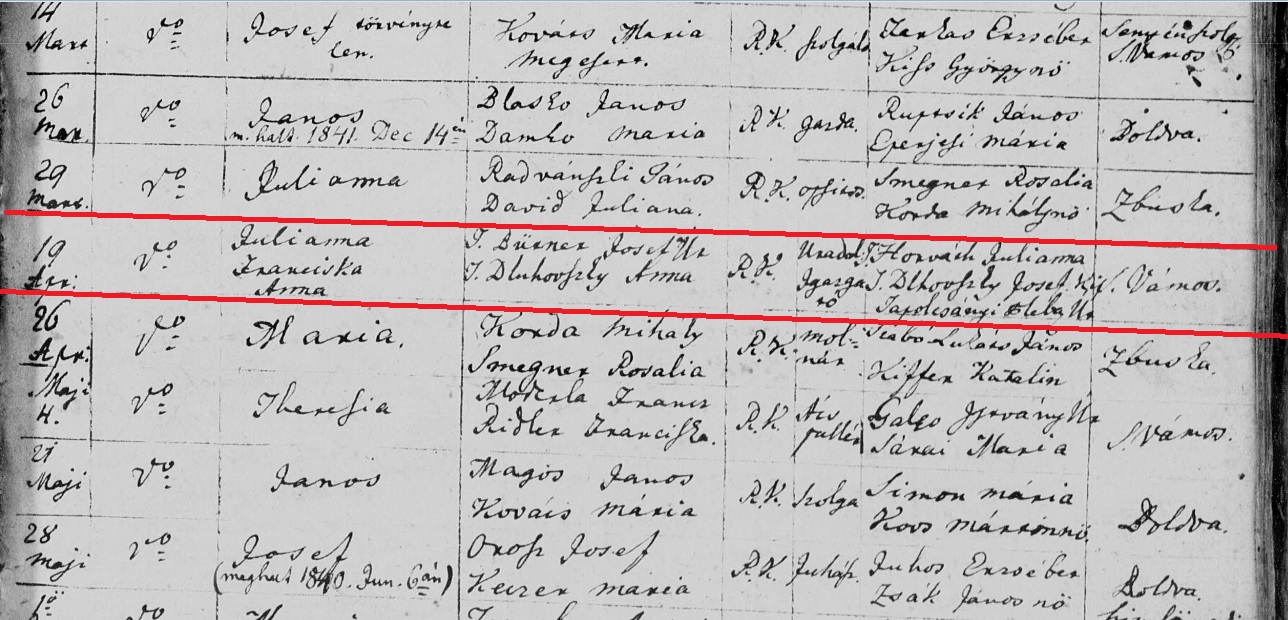 14 Mart vo Josef törvénytelen. Kovács Maria megesett. R.K. szolgáló Farkas Ersébet Kiss Györgynő S. Vámos
26 Mar. vo Janos m. halt. 1841. Dec 14én Blasko Janos Damko maria R.K. gazda. Ruptsik János Eperjesi mária Boldva.
29 Mart. vo Julianna Radvánszki János David Juliana. R.K. Smegner Rosalia Korda Mihálynő Zbuska.
19 Apr: vo Julianna Franciska Anna T. Bürner Josef Ur T. Dluhovszky Anna R.K. Uradal: Igazgató T. Horváth Julianna T. Dlhovszky Josef Tapolcsányi Pleba Ur S. Vámos.
26 Apr: vo Maria. Korda Mihály Smegner Rosalia R.K. molnár Szabó Lukáts János Kiffer Katalin Zbuska.
Maji 4. vo Theresia Moderla Francz Ridler Franciska. R.K. Áts pallér István Ur Sárai Maria S. Vámos.
21 Maji vo Janos Magos Janos Kovács mária R.K. szolga Simon mária Koos mártonnő Boldva.
28 maji vo Josef (meghalt 1840. Jun. 6án) Orosz Josef Keczer mária R.K. Juhász. Juhos Ersébet Zsák János nő Boldva.
vo